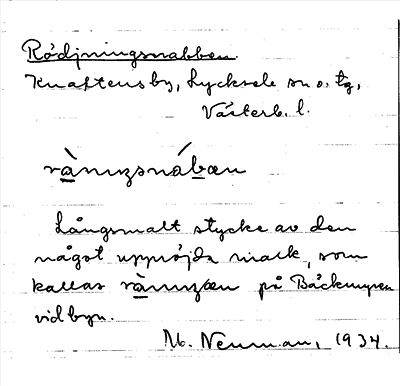 Rödjningsnabben.
Knaftens by, Lycksele sn o. tg,
Västerb. l.
rànuzsnábæn
Långsmalt stycke av den
något uppröjda mark, som
kallas rànuzæn på Bäckmyren
vid byn.
M. Neuman, 1934.